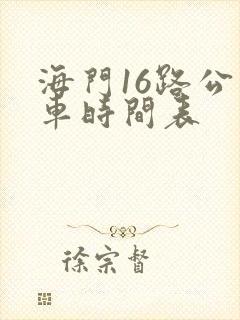 海門16路公
車時間表
徐宗督